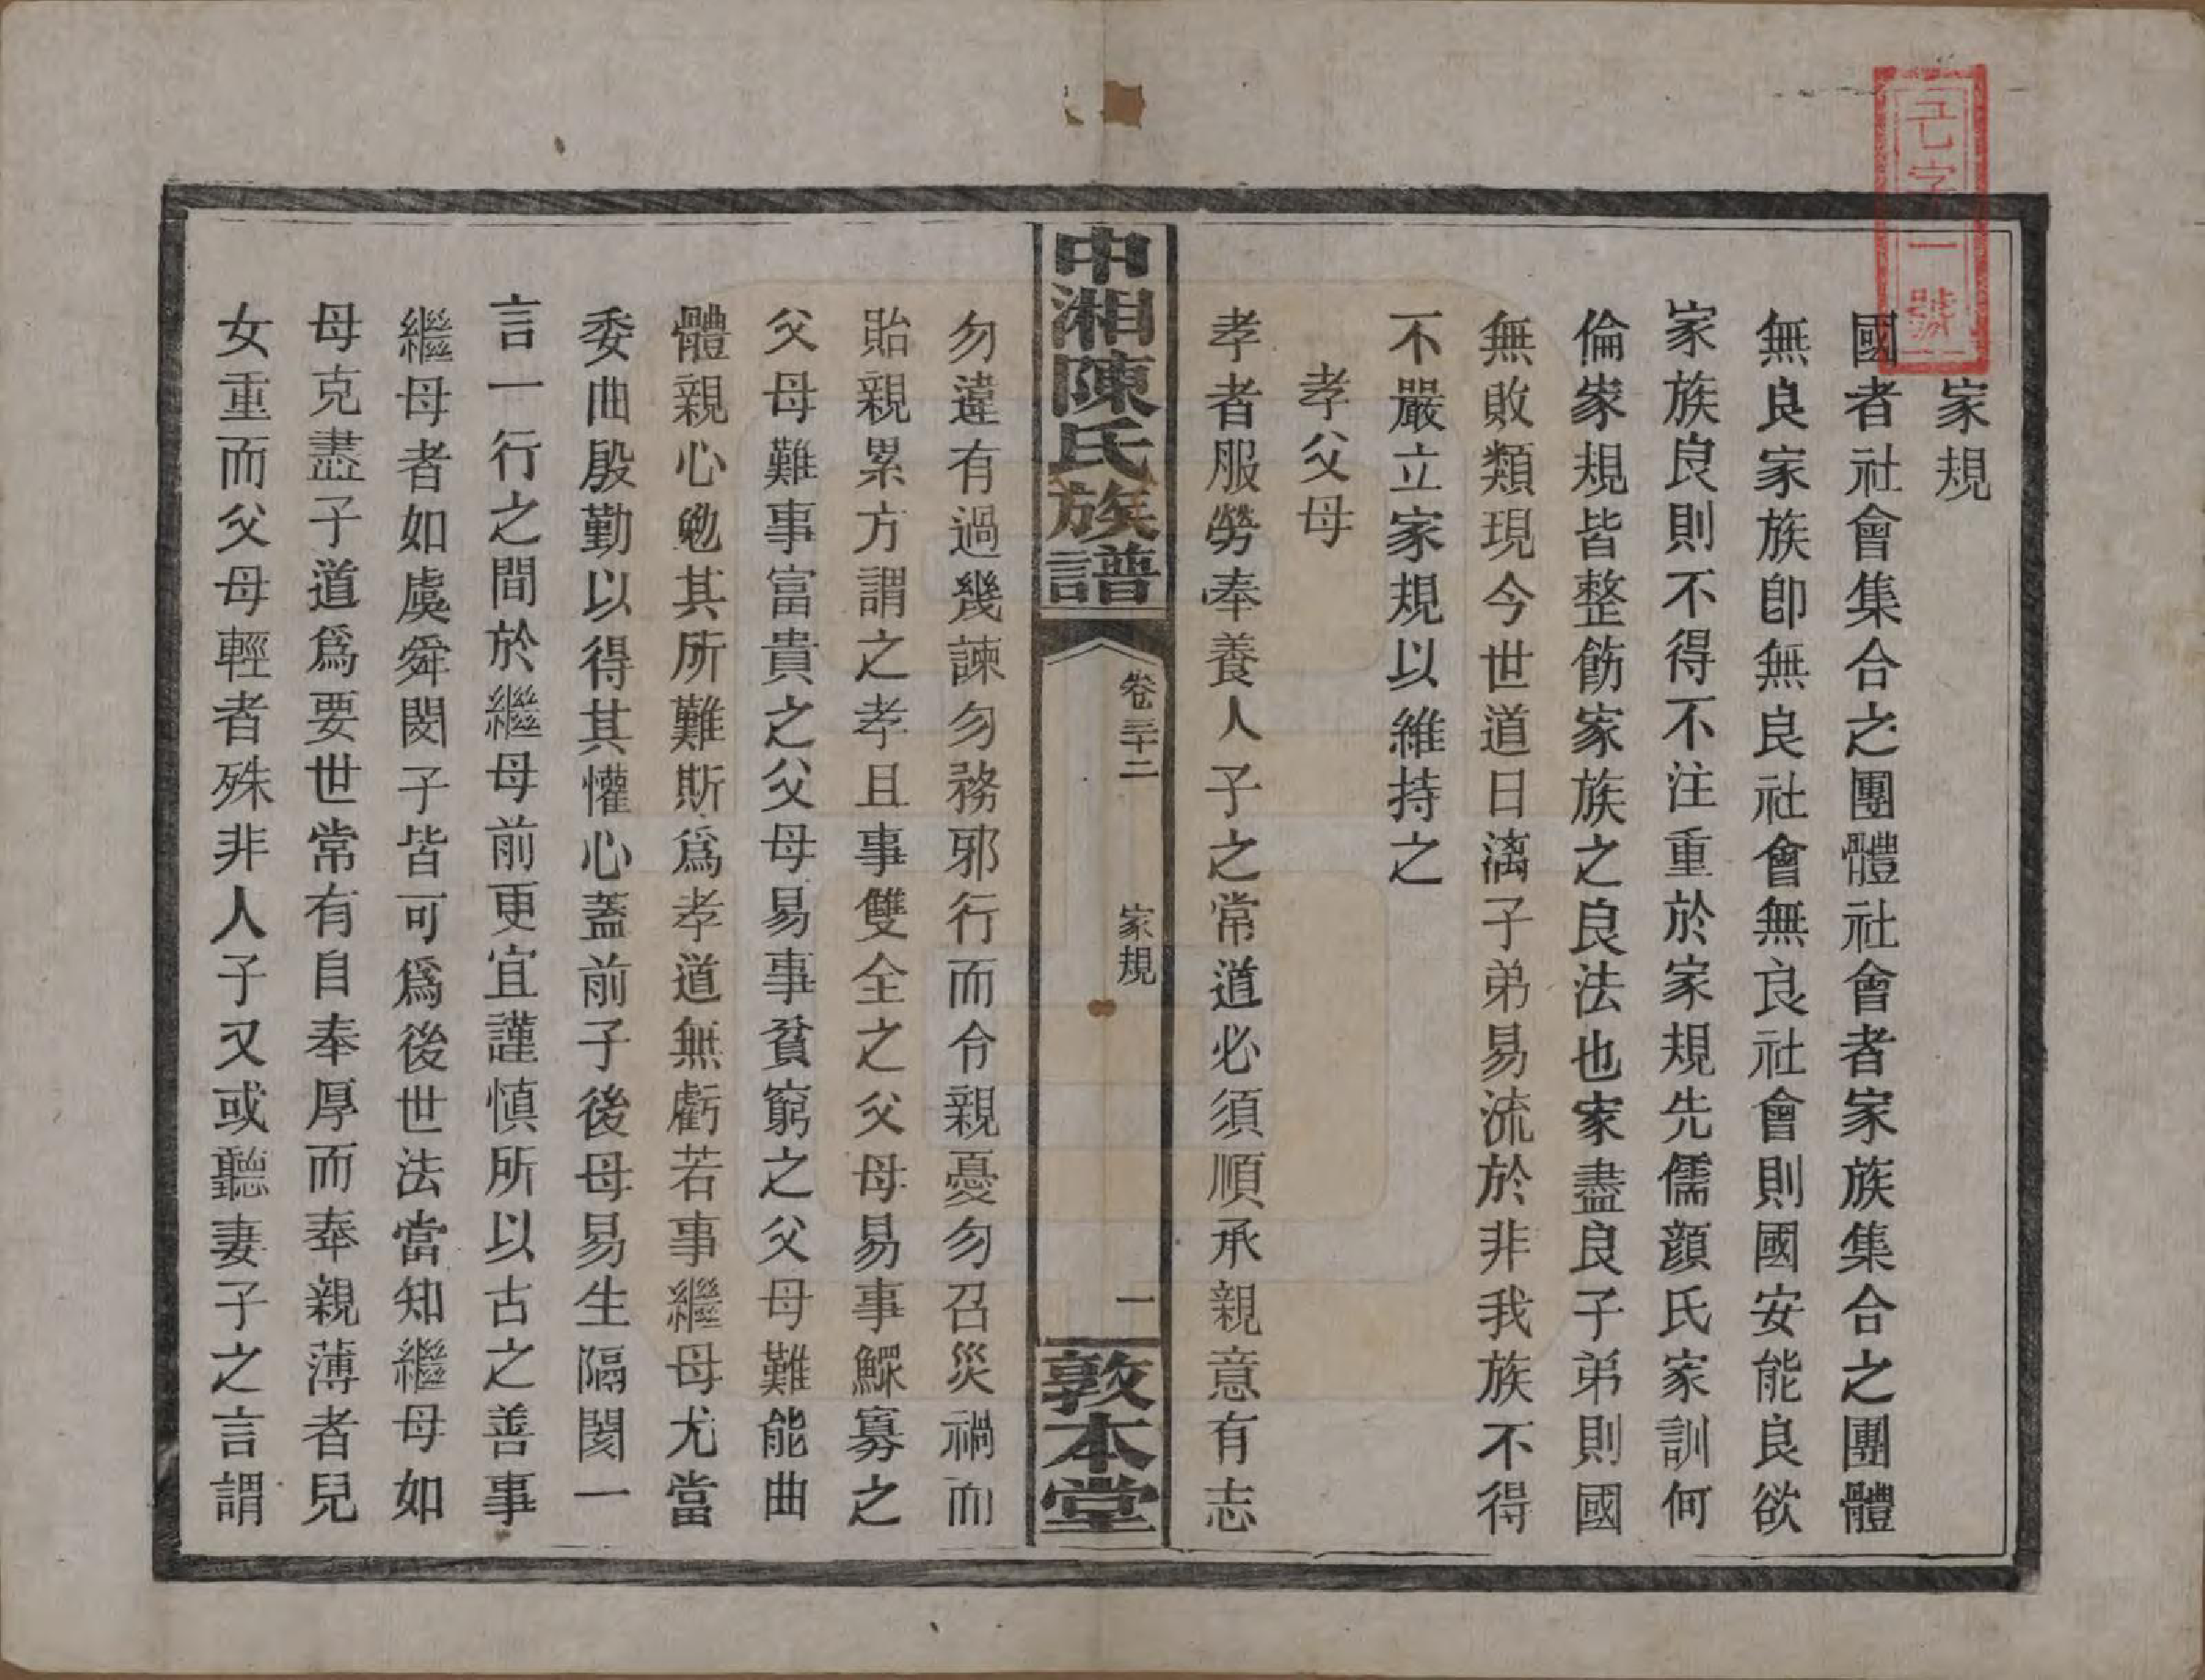 家規
國者社會集合之團體社會者家族集合之團體
無良家族卽無良社會無良社會則國安能良欲
家族良則不得不注重於家規先儒顏氏家訓何
倫家規皆整飭家族之良法也家盡良子弟則國
無敗類現今世道日漓子弟易流於非我族不得
不嚴立家規以維持之
孝父母
孝者服勞奉養人子之常道必須順承親意有志
中湘陳氏族譜
卷三十二
家規
一
敦本堂
勿違有過幾諫勿務邪行而令親憂勿召災禍而
貽親累方謂之孝且事雙全之父母易事鰥寡之
父母難事富貴之父母易事貧窮之父母難能曲
體親心勉其所難斯爲孝道無虧若事繼母尤當
委曲殷勤以得其懽心蓋前子後母易生隔閡一
言一行之間於繼母前更宜謹慎所以古之善事
繼母者如虞舜閔子皆可爲後世法當知繼母如
母克盡子道爲要世常有自奉厚而奉親薄者兒
女重而父母輕者殊非人子又或聽妻子之言謂
字
一
號